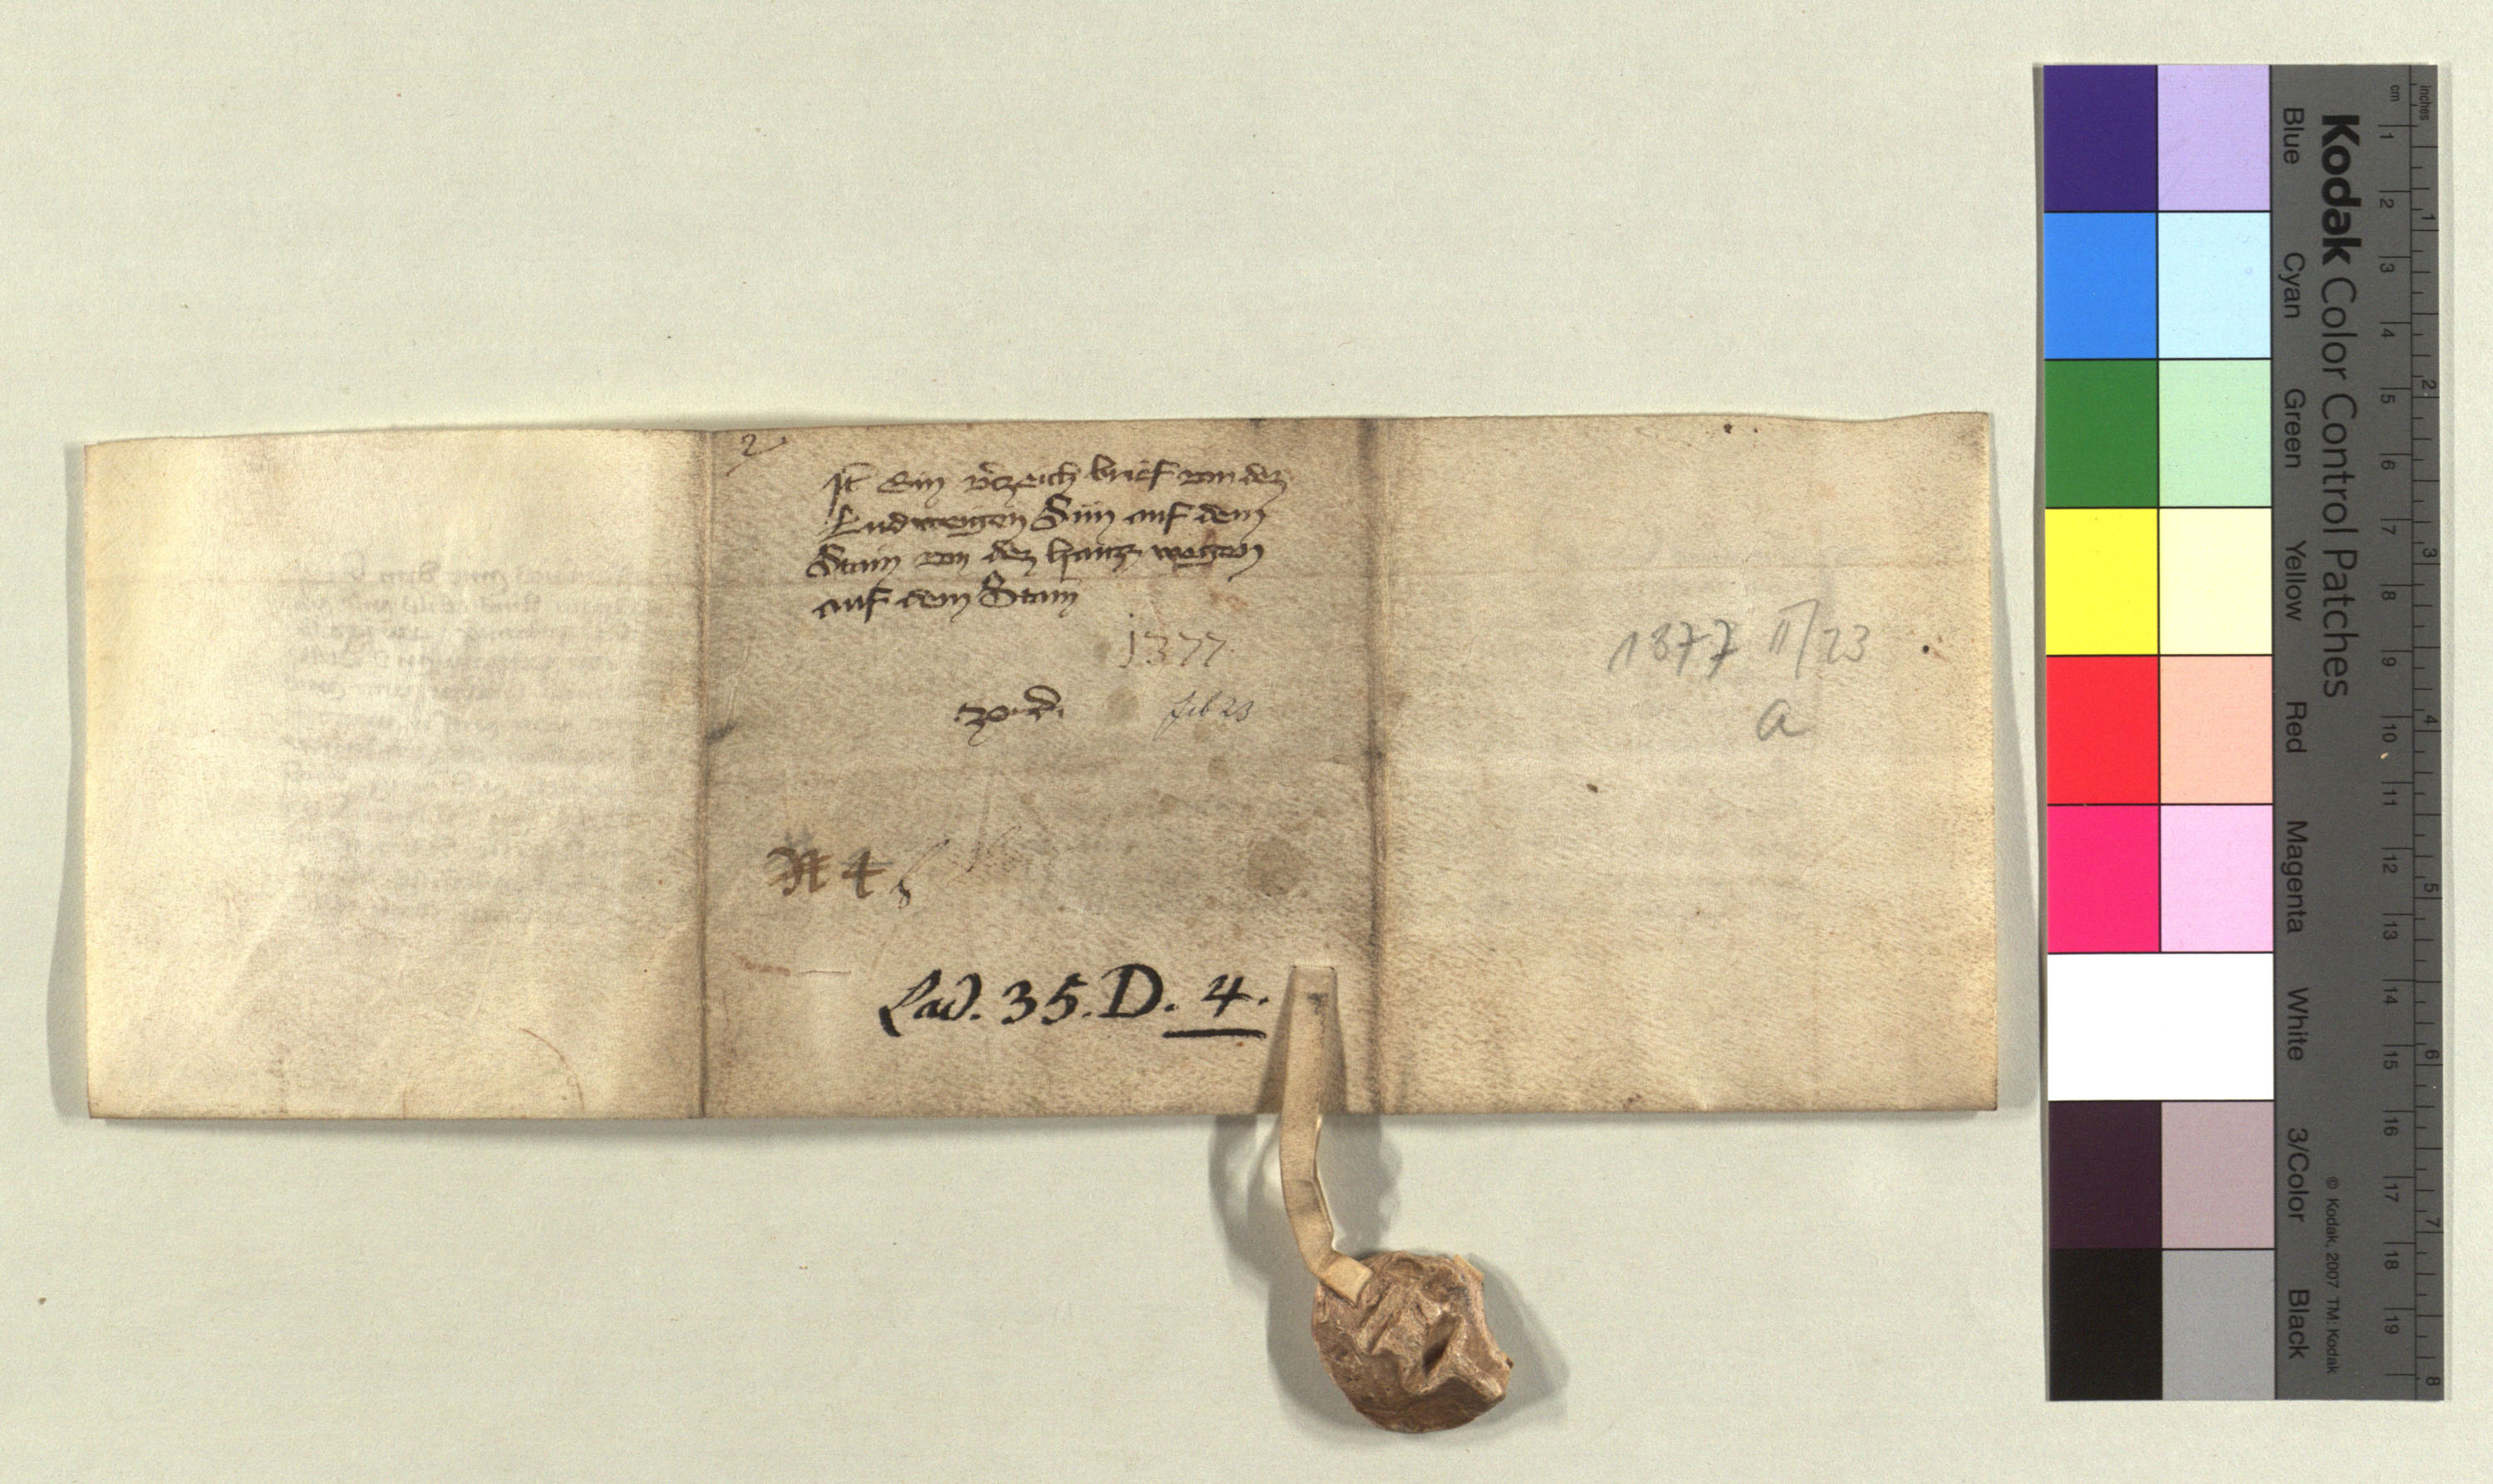 2
It Ein v̄zeich brief von dez
Ludweigen Sün auf dem
Stain von dez hainz wegen
auf dem Stain
1377
feb 23
N 4
Lad. 35. D. 4.
1377 II/23
a
Kodak Color Control Patches
Blue Cyan Green Yellow Red Magenta White 3/Color Black
© Kodak, 2007 TM: Kodak
inches 1 2 3 4 5 6 7 8
cm 1 2 3 4 5 6 7 8 9 10 11 12 13 14 15 16 17 18 19